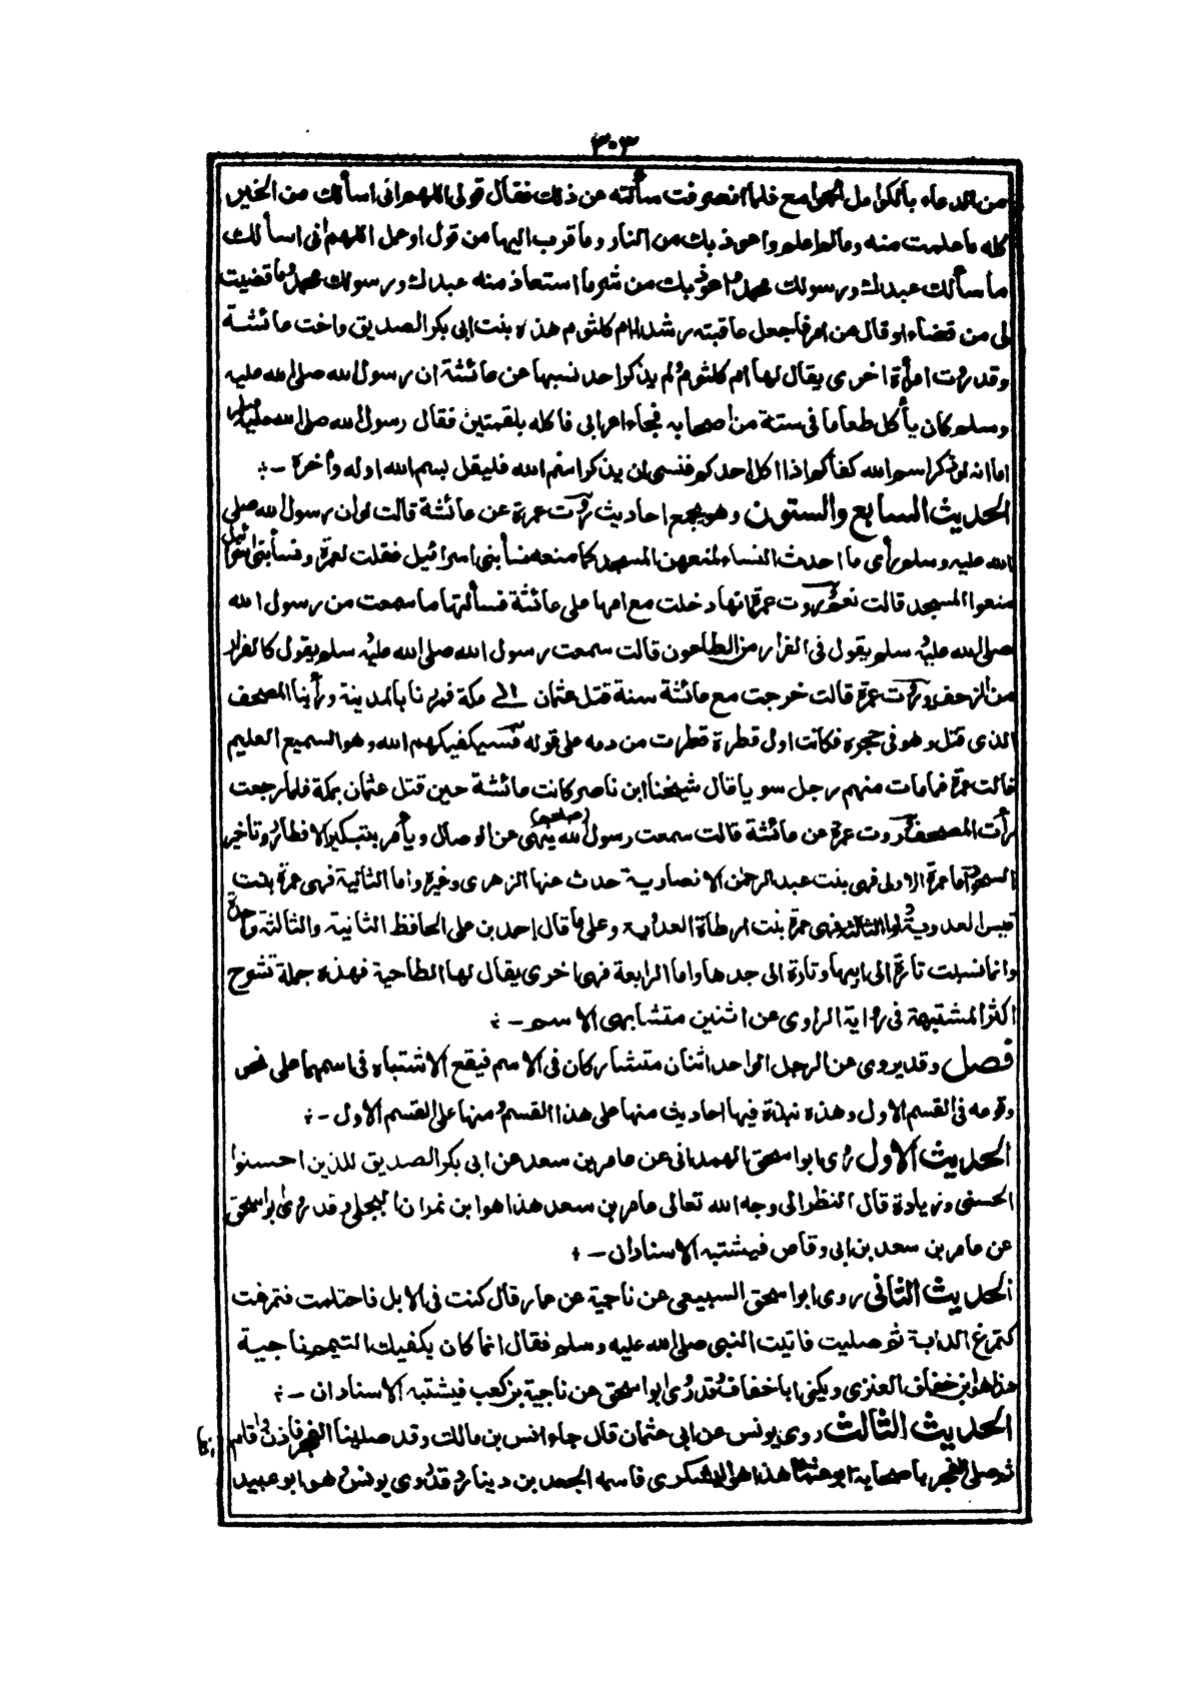 ٣٠٣
من الدعاء بالكوامل الجوامع فلما انصرفت سألته عن ذلك فقال قولى اللهم انى اسألك من الخير
كله ما علمت منه ومالم اعلم واعوذ بك من النار وما قرب اليها من قول او عمل اللهم انى اسألك
ما سألك عبدك ورسولك محمد واعوذ بك من شر ما استعاذ منه عبدك ورسولك محمد وما قضيت
لى من قضاء او قال من امر فاجعل عاقبته رشدا ام كلثوم هذه بنت ابى بكر الصديق واخت عائشة
وقد روت امرأة اخرى يقال لها ام كلثوم ولم يذكر احد نسبها عن عائشة ان رسول الله صلى الله عليه
وسلم كان يأكل طعاما فى ستة من اصحابه فجاء اعرابى فاكله بلقمتين فقال رسول الله صلى الله عليه وسلم
اما انه لو ذكر اسم الله كفاكم اذا اكل احدكم فنسى ان يذكر اسم الله فليقل بسم الله اوله وأخره -
الحديث السابع والستون وهو يجمع احاديث روت عمرة عن عائشة قالت لو ان رسول الله صلى
الله عليه وسلم رأى ما احدث النساء لمنعهن المسجد كما منعه نساء بنى اسرائيل فقلت لعمرة ونساء بنى اسرائيل
منعوا المسجد قالت نعم وروت عمرة انها دخلت مع امها على عائشة فسألتها ما سمعت من رسول الله
صلى الله عليه وسلم يقول فى الفرار من الطاعون قالت سمعت رسول الله صلى الله عليه وسلم يقول كالفرار
من الزحف وروت عمرة قالت خرجت مع عائشة سنة قتل عثمان الى مكة فمررنا بالمدينة ورأينا المصحف
الذى قتل وهو فى حجره فكانت اول قطرة قطرت من دمه على قوله فسيكفيكهم الله وهو السميع العليم
قالت عمرة فما مات منهم رجل سويا قال شيخنا ابن ناصر كانت عائشة حين قتل عثمان بمكة فلما رجعت
رأت المصحف وروت عمرة عن عائشة قالت سمعت رسول الله (صلعم) ينهى عن الوصال ويأمر بتبكير الافطار وتاخير
السحور اما عمرة الاولى فهى بنت عبد الرحمن الانصارية حدث عنها الزهرى وغيره واما الثانية فهى عمرة بنت
قيس العدوية واما الثالثة فهى عمرة بنت ارطاة العدوية وعلى ما قال احمد بن على الحافظ الثانية والثالثة واحدة
وانما نسبت تارة الى ابيها وتارة الى جدها واما الرابعة فهى اخرى يقال لها الطاحية فهذه جملة تشرح
اكثر المشتبهة فى رواية الراوى عن اثنين متشابهى الاسم -
فصل وقد يروى عن الرجل الواحد اثنان متشاركان فى الاسم فيقع الاشتباه فى اسمهما على نحو
وقوعه فى القسم الاول وهذه نبذة فيها احاديث منها على هذا القسم ومنها على القسم الاول -
الحديث الاول روى ابو اسحق الهمدانى عن عامر بن سعد عن ابى بكر الصديق للذين احسنوا
الحسنى وزيادة قال النظر الى وجه الله تعالى عامر بن سعد هذا هو ابن نمران البجلى وقد روى ابو اسحق
عن عامر بن سعد بن ابى وقاص فيشتبه الاسنادان -
الحديث الثانى روى ابو اسحق السبيعى عن ناجية عن عمار قال كنت فى الابل فاحتلمت فتمرغت
كتمرغ الدابة ثم صليت فاتيت النبى صلى الله عليه وسلم فقال انما كان يكفيك التيمم ناجية
هذا هو ابن خفاف العنزى ويكنى ابا خفاف وقد روى ابو اسحق عن ناجية بن كعب فيشتبه الاسنادان -
الحديث الثالث روى يونس عن ابى عثمان قال جاء انس بن مالك وقد صلينا الفجر فاذن واقام
ثم صلى الفجر باصحابه ابو عثمان هذا هو اليشكرى فاسمه الجعد بن دينار وقد روى يونس وهو ابو عبيد